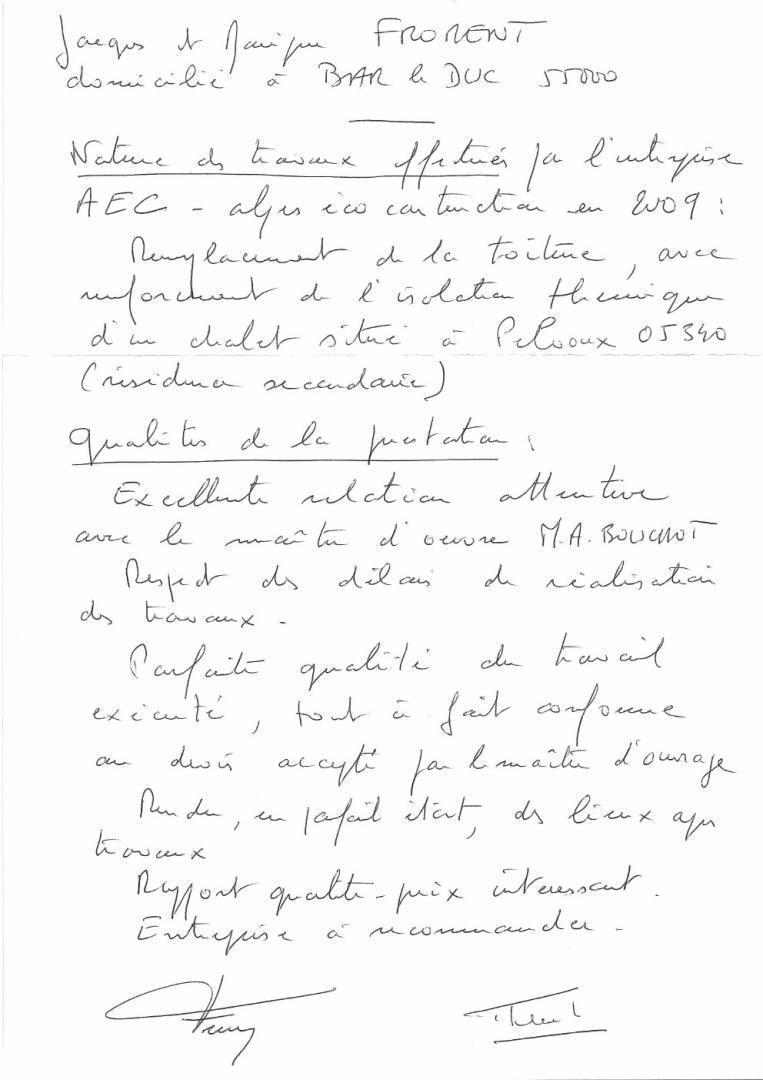 Jacques et Monique FRORENT
domicilié à BAR le DUC 55000
Nature des travaux effectués par l'entreprise
AEC - alpes éco construction en 2009 :
Remplacement de la toiture, avec
renforcement de l'isolation thermique
d'un chalet situé à Pelvoux 05340
(résidence secondaire)
Qualités de la prestation :
Excellente relation attentive
avec le maître d'oeuvre M.A. BOUCHOT
Respect des délais de réalisation
des travaux.
Parfaite qualité du travail
exécuté, tout à fait conforme
au devis accepté par le maître d'ouvrage
Rendu, en parfait état, des lieux après
travaux
Rapport qualité-prix intéressant.
Entreprise à recommander.